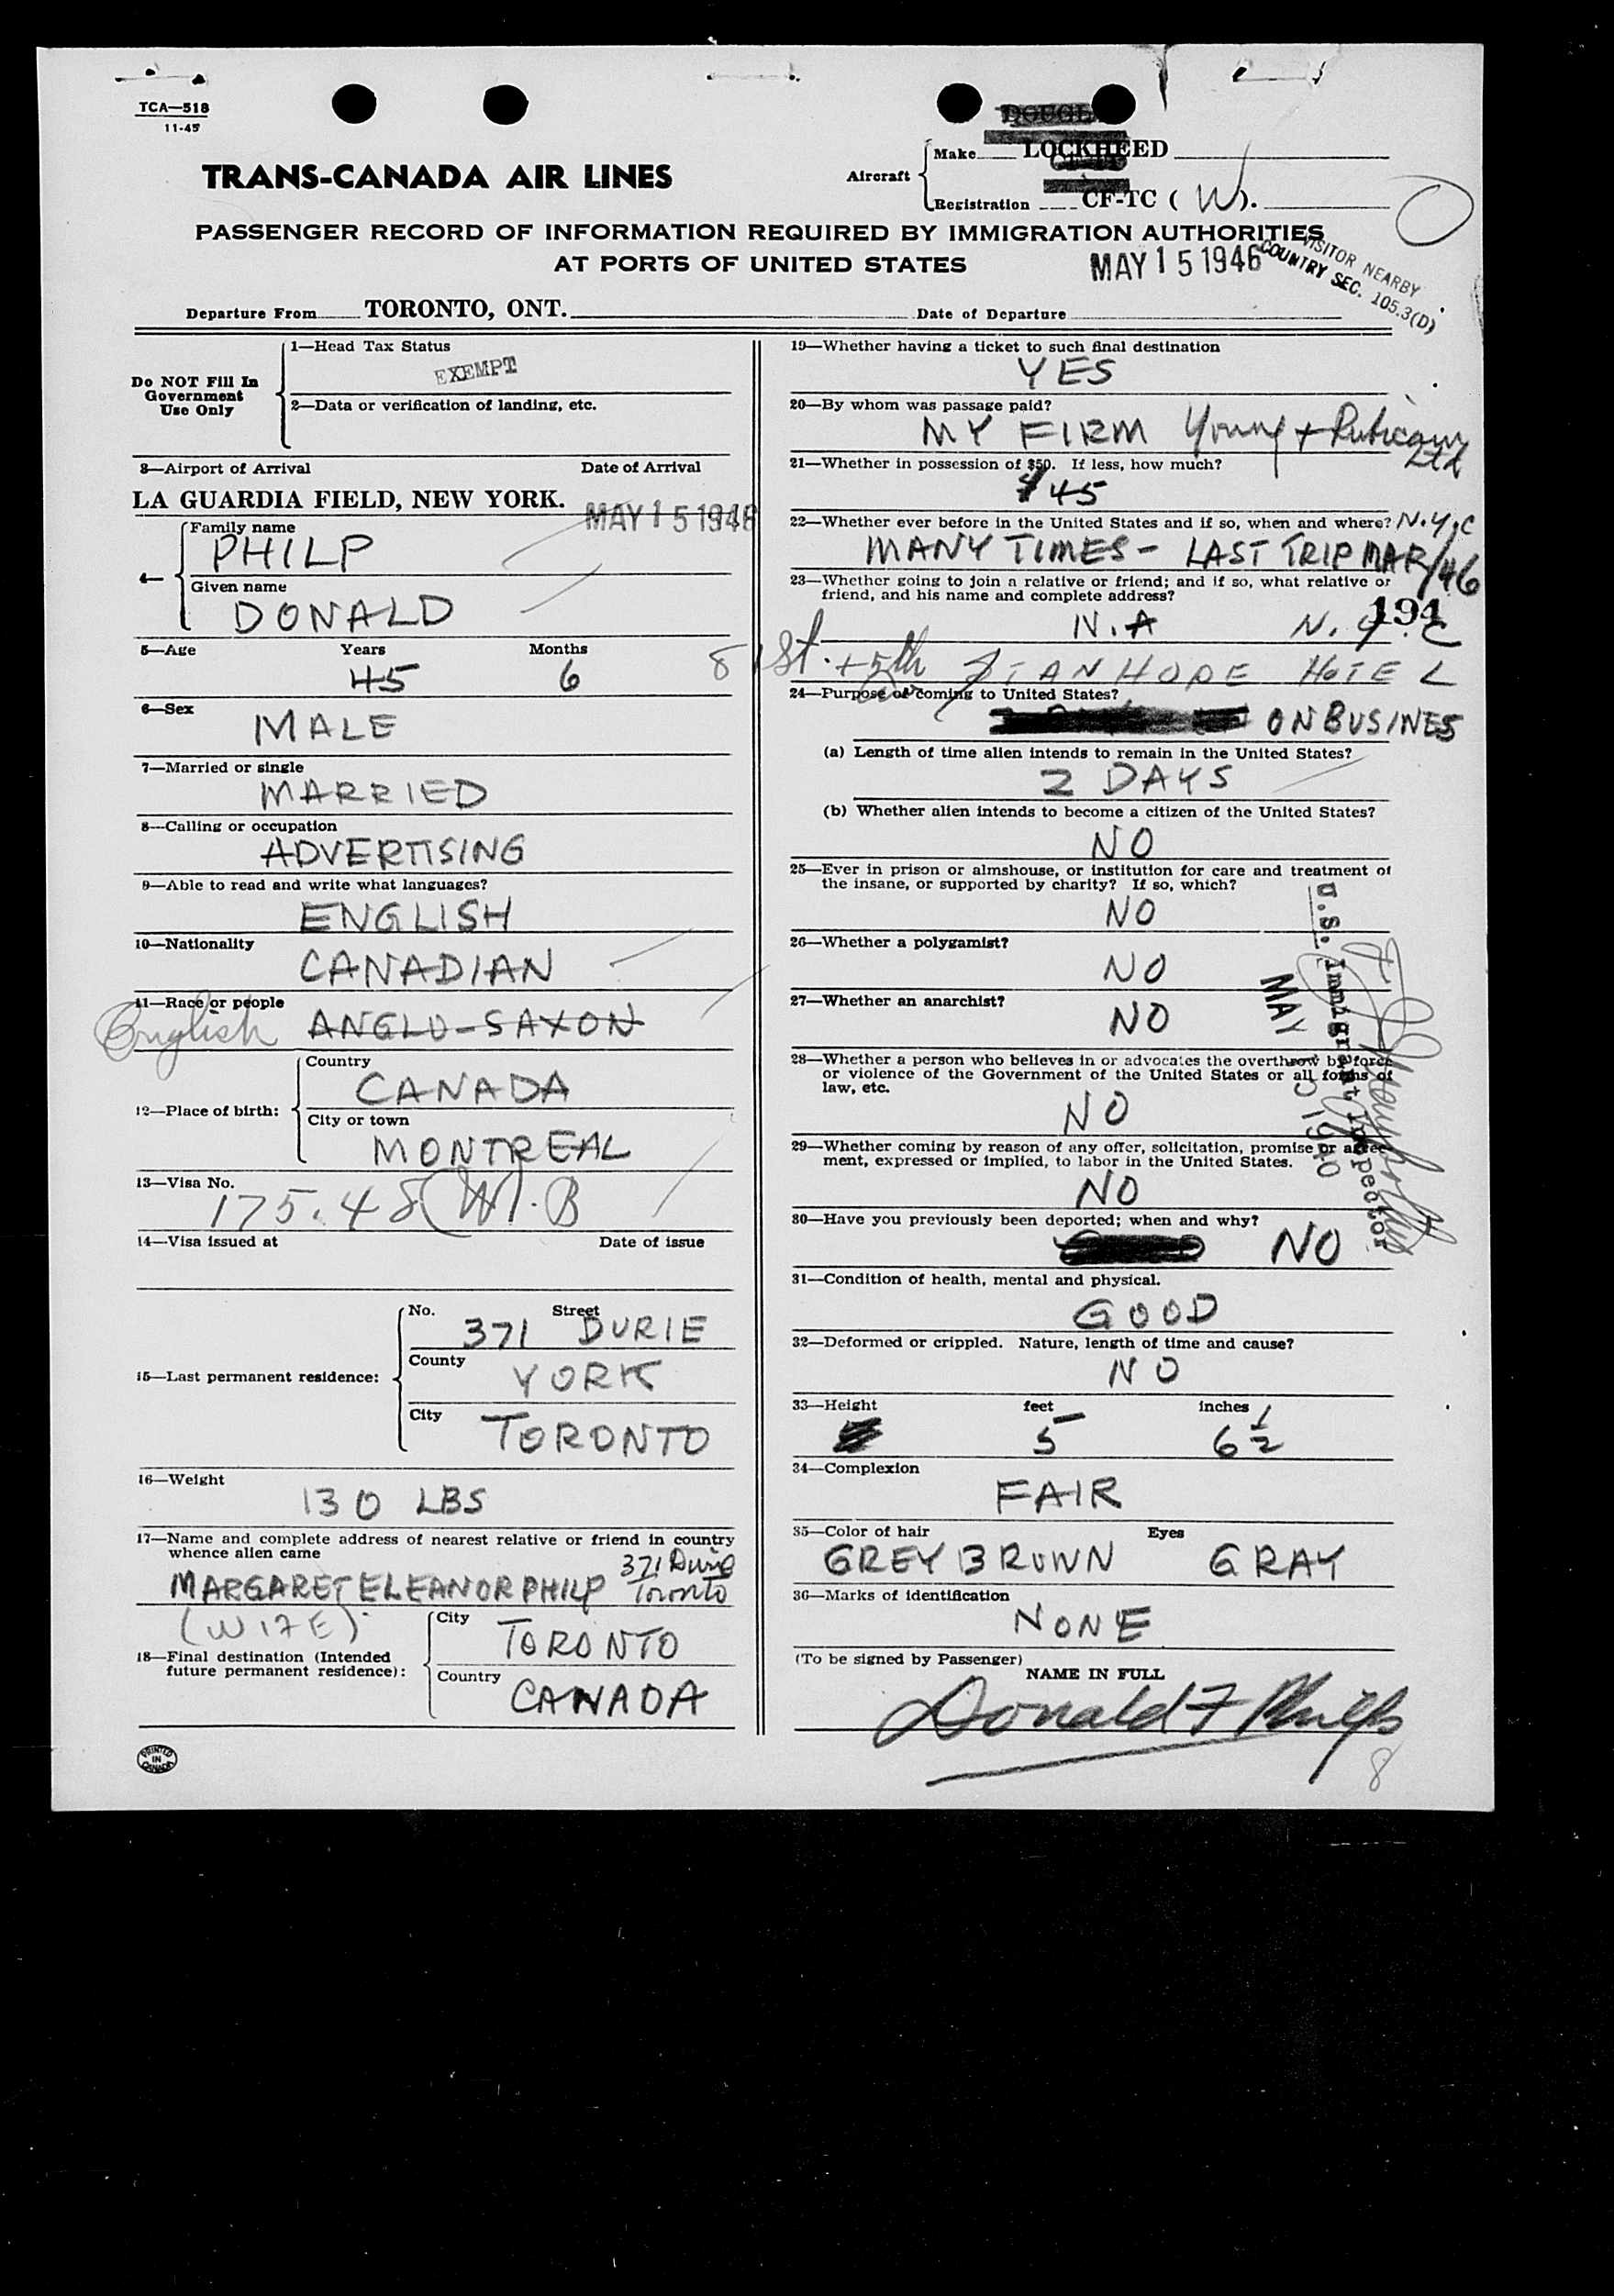 TCA—518
11-45
TRANS-CANADA AIR LINES
DOUGL
Aircraft
Make LOCKHEED
Registration CF-TC ( W ).
PASSENGER RECORD OF INFORMATION REQUIRED BY IMMIGRATION AUTHORITIES
AT PORTS OF UNITED STATES
MAY 15 1946
VISITOR NEARBY
COUNTRY SEC. 105.3(D)
Departure From TORONTO, ONT. Date of Departure
Do NOT Fill In
Government
Use Only
1—Head Tax Status
EXEMPT
2—Data or verification of landing, etc.
3—Airport of Arrival Date of Arrival
LA GUARDIA FIELD, NEW YORK. MAY 15 1946
4—
Family name
PHILP
Given name
DONALD
5—Age Years Months
45 6
6—Sex
MALE
7—Married or single
MARRIED
8—Calling or occupation
ADVERTISING
9—Able to read and write what languages?
ENGLISH
10—Nationality
CANADIAN
11—Race or people
English ANGLO-SAXON
12—Place of birth:
Country
CANADA
City or town
MONTREAL
13—Visa No.
175.48 (W).B
14—Visa issued at Date of issue
15—Last permanent residence:
No. Street
371 DURIE
County
YORK
City
TORONTO
16—Weight
130 LBS
17—Name and complete address of nearest relative or friend in country
whence alien came
MARGARET ELEANOR PHILP 371 Durie
Toronto
(WIFE)
18—Final destination (Intended
future permanent residence):
City
TORONTO
Country
CANADA
PRINTED
IN
CANADA
19—Whether having a ticket to such final destination
YES
20—By whom was passage paid?
MY FIRM Young + Rubicam
Ltd
21—Whether in possession of $50. If less, how much?
$45
22—Whether ever before in the United States and if so, when and where? N.Y.C
MANY TIMES - LAST TRIP MAR/46
23—Whether going to join a relative or friend; and if so, what relative or
friend, and his name and complete address?
194
N.A N.Y.C
81st. + 5th STANHOPE HOTEL
24—Purpose of coming to United States?
ON BUSINES
(a) Length of time alien intends to remain in the United States?
2 DAYS
(b) Whether alien intends to become a citizen of the United States?
NO
25—Ever in prison or almshouse, or institution for care and treatment of
the insane, or supported by charity? If so, which?
NO
26—Whether a polygamist?
NO
27—Whether an anarchist?
NO
28—Whether a person who believes in or advocates the overthrow by force
or violence of the Government of the United States or all forms of
law, etc.
NO
29—Whether coming by reason of any offer, solicitation, promise or agree-
ment, expressed or implied, to labor in the United States.
NO
30—Have you previously been deported; when and why?
NO
U.S. Immigrant Inspector
MAY
31—Condition of health, mental and physical.
GOOD
32—Deformed or crippled. Nature, length of time and cause?
NO
33—Height feet inches
5 6 1/2
34—Complexion
FAIR
35—Color of hair Eyes
GREY BROWN GRAY
36—Marks of identification
NONE
(To be signed by Passenger)
NAME IN FULL
Donald F Philp
8